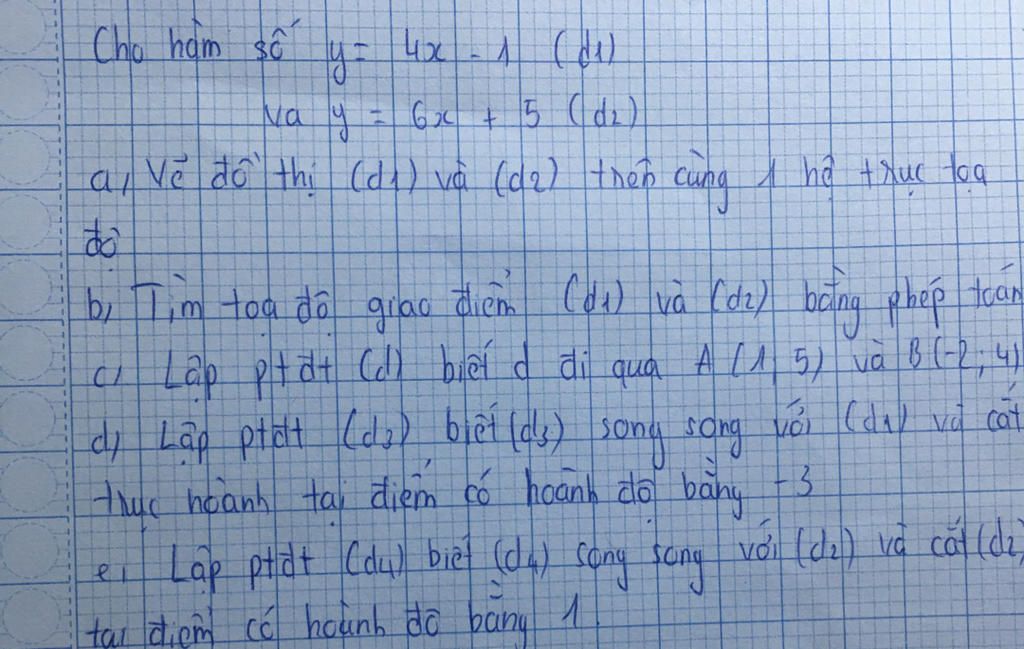 Cho hàm số y = 4x - 1 (d1)
và y = 6x + 5 (d2)
a, Vẽ đồ thị (d1) và (d2) trên cùng 1 hệ trục toạ
độ
b, Tìm toạ độ giao điểm (d1) và (d2) bằng phép toán
c, Lập ptđt (d) biết d đi qua A (1, 5) và B (-2; 4)
d, Lập ptđt (d3) biết (d3) song song với (d1) và cắt
trục hoành tại điểm có hoành độ bằng -3
e, Lập ptđt (d4) biết (d4) song song với (d2) và cắt (d2)
tại điểm có hoành độ bằng 1